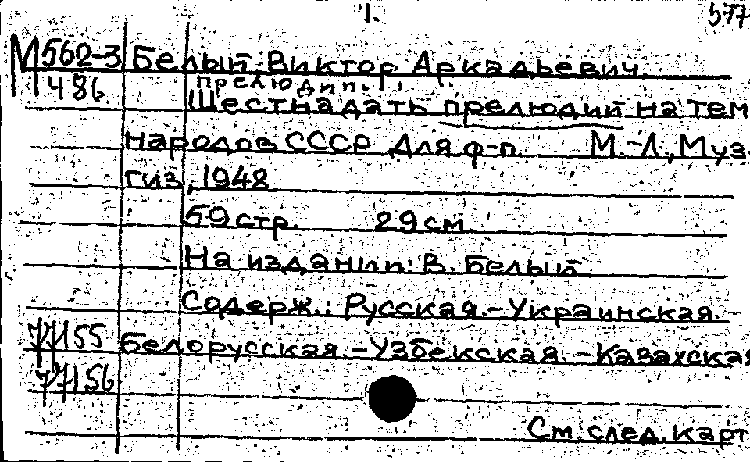 1. 577
М562-3 Белый Виктор Аркадьевич.
486 прелюдии.
Шестнадцать прелюдий на тем
народов СССР Для ф-п. М.-Л., Муз
гиз, 1948
59 стр. 29 см.
На издании: В. Белый
Содерж.: Русская.-Украинская.
77155 Белорусская.-Узбекская.-Казахская
77156
См. след. карт